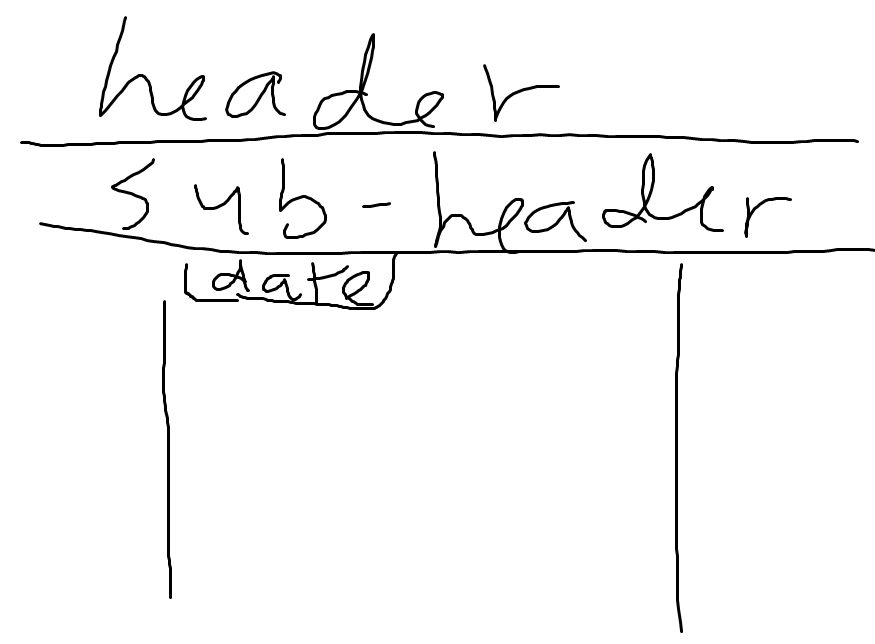 header
sub-header
date